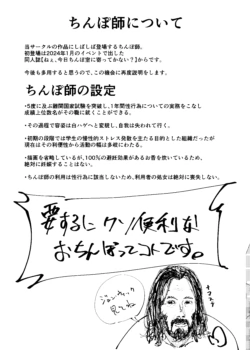 ちんぽ師について
当サークルの作品にしばしば登場するちんぽ師。
初登場は2024年1月のイベントで出した
同人誌【ねぇ、今日ちんぽ室に寄ってかない？】からです。
今後も多用すると思うので、この機会に再度説明します。
ちんぽ師の設定
・5度に及ぶ難関国家試験を突破し、1年間性行為についての実務をこなし
成績上位数名がその職に就くことができる。
・その過程で容姿は白ハゲへと変貌し、自我は失われて行く。
・初期の段階では学生の慢性的ストレス発散を主たる目的とした組織だったが
現在はその利便性から活動の幅は多岐にわたる。
・描写を省略しているが、100%の避妊効果があるお香を炊いているため、
絶対に妊娠することはない。
・ちんぽ師の利用は性行為に該当しないため、利用者の処女は絶対に喪失しない。
要するにクソ便利な
おちんぽってコトです。